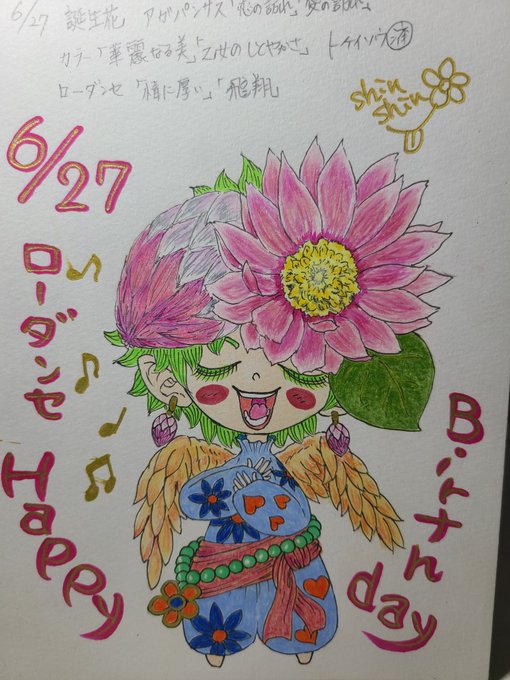 6/27 誕生花 アガパンサス「恋の訪れ」「愛の訪れ」
カラー「華麗なる美」「乙女のしとやかさ」 トケイソウ
ローダンセ「情に厚い」「飛翔」
shin
shin
6/27
ローダンセ
Happy
Birthday